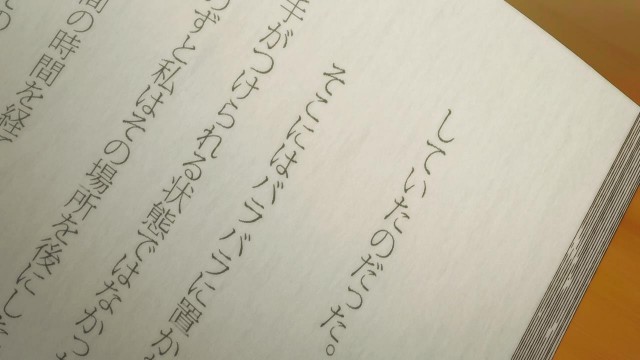 していたのだった。
そこにはバラバラに置か
手がつけられる状態ではなかっ
ずと私はその場所を後にし
間の時間を経